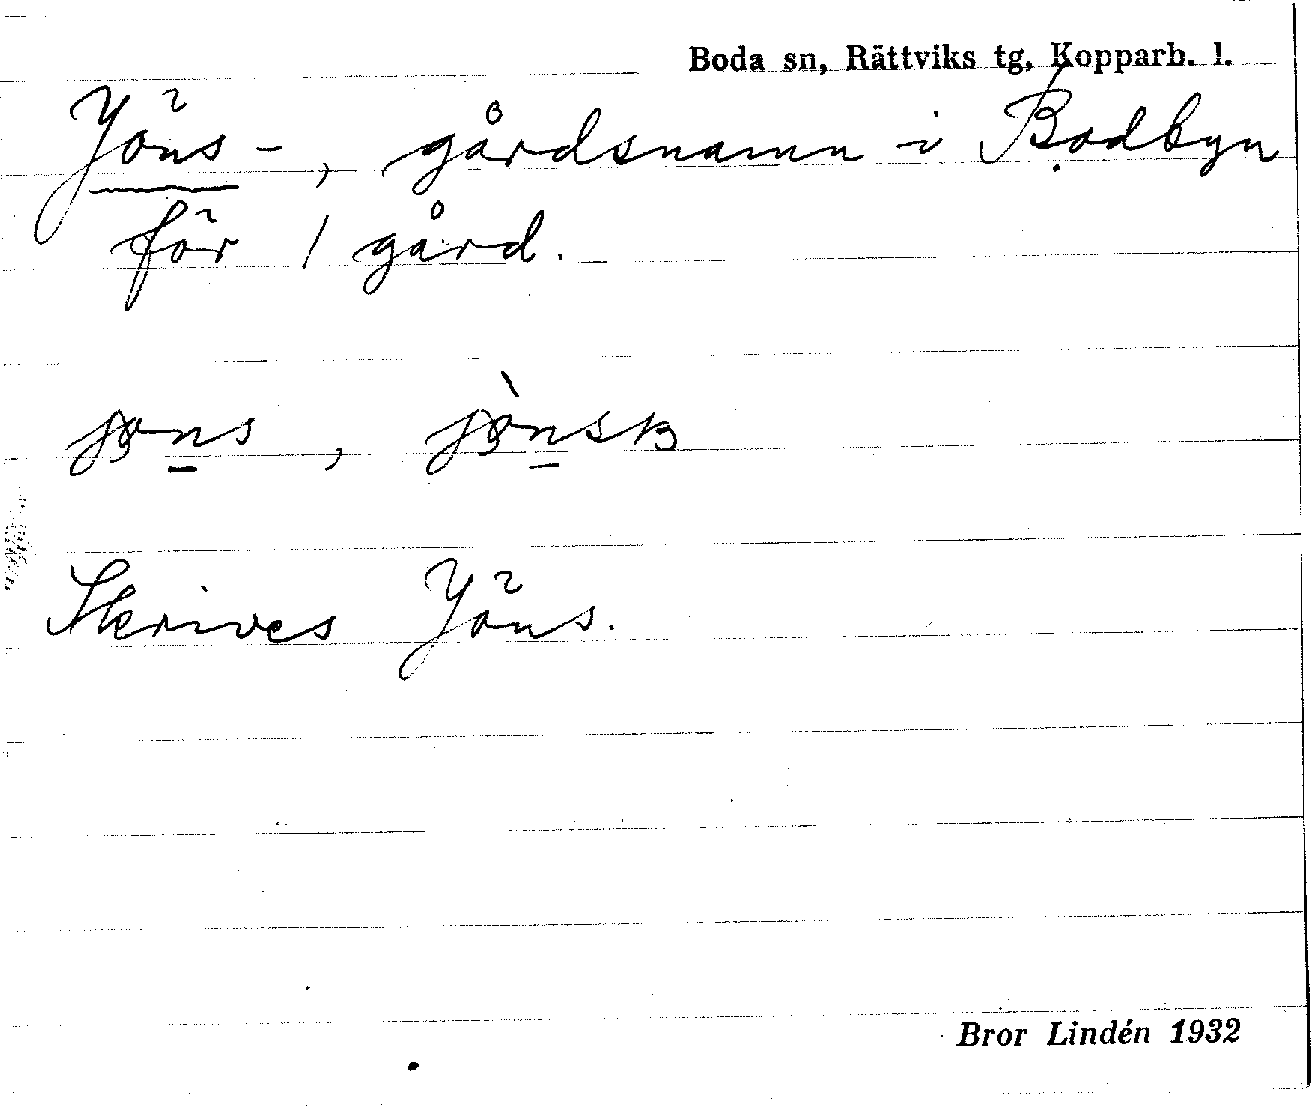 Boda sn, Rättviks tg, Kopparb. l.
Jöns-, gårdsnamn i Bodbyn
för 1 gård.
Skrives Jöns.
Bror Lindén 1932